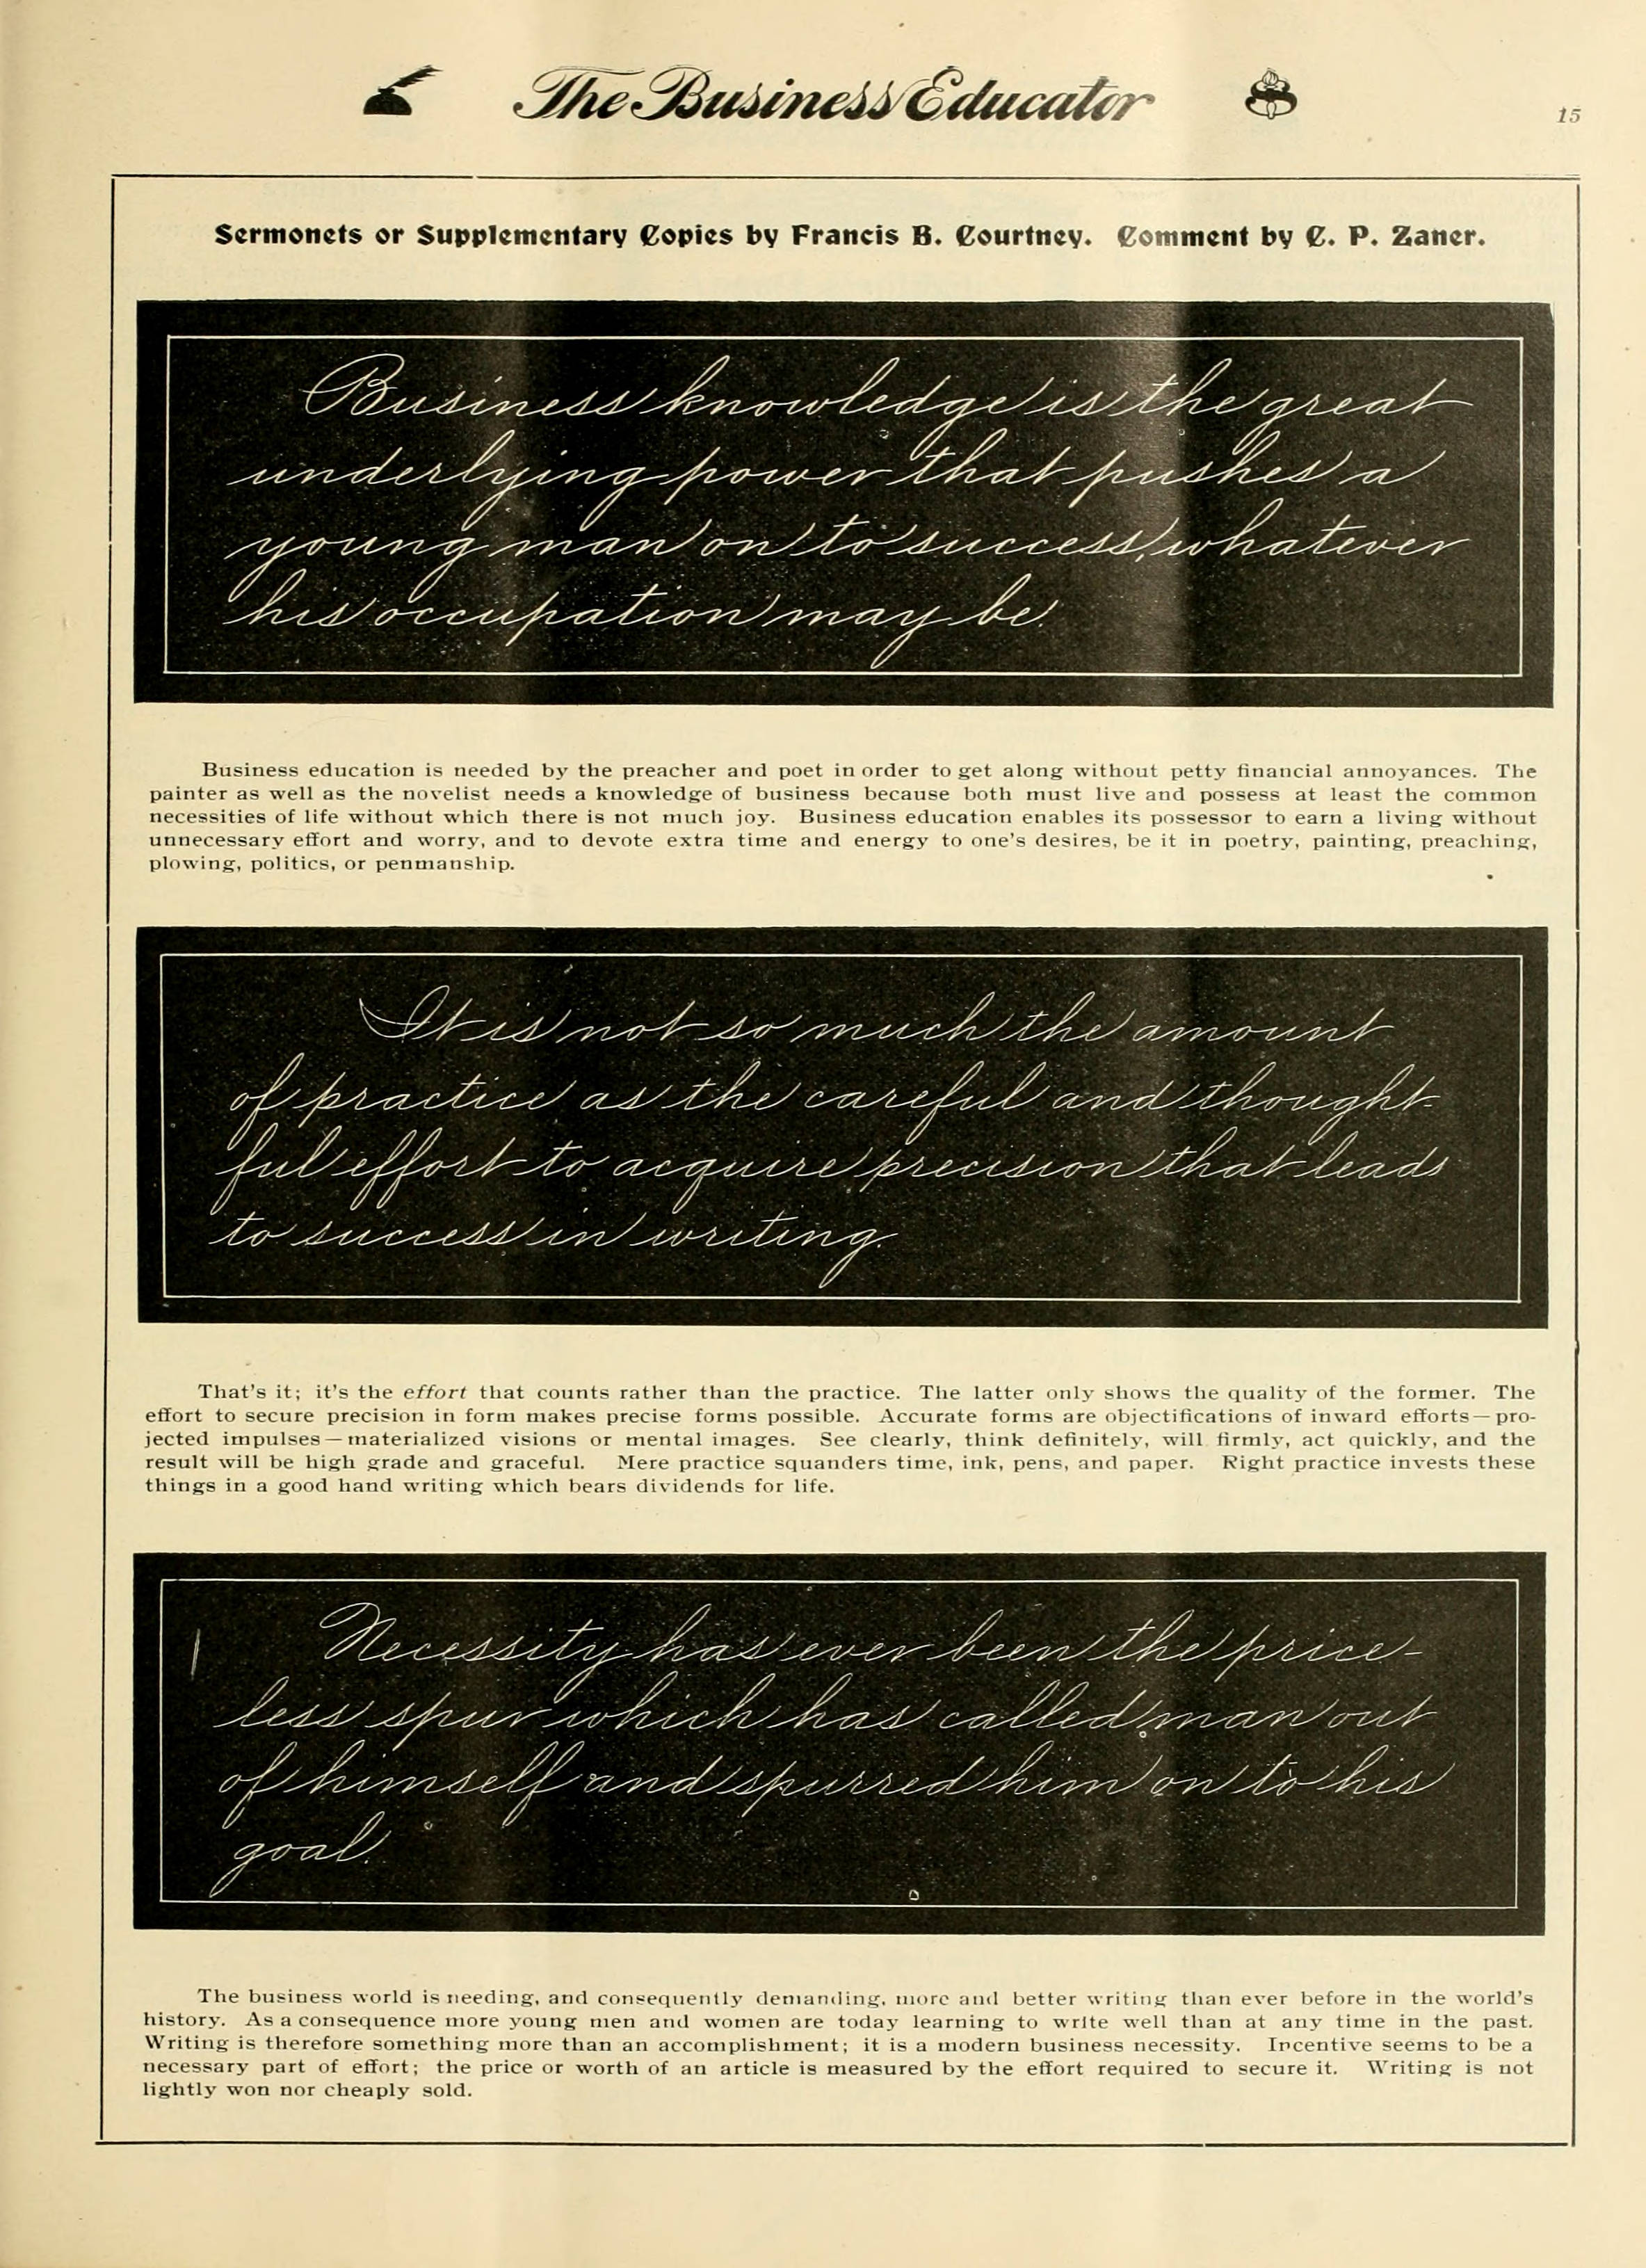 The Business Educator
15
Sermonets or Supplementary Copies by Francis B. Courtney. Comment by C. P. Zaner.
Business knowledge is the great
underlying power that pushes a
young man on to success, whatever
his occupation may be.
Business education is needed by the preacher and poet in order to get along without petty financial annoyances. The
painter as well as the novelist needs a knowledge of business because both must live and possess at least the common
necessities of life without which there is not much joy. Business education enables its possessor to earn a living without
unnecessary effort and worry, and to devote extra time and energy to one's desires, be it in poetry, painting, preaching,
plowing, politics, or penmanship.
It is not so much the amount
of practice as the careful and thought-
ful effort to acquire precision that leads
to success in writing.
That's it; it's the effort that counts rather than the practice. The latter only shows the quality of the former. The
effort to secure precision in form makes precise forms possible. Accurate forms are objectifications of inward efforts—pro-
jected impulses—materialized visions or mental images. See clearly, think definitely, will firmly, act quickly, and the
result will be high grade and graceful. Mere practice squanders time, ink, pens, and paper. Right practice invests these
things in a good hand writing which bears dividends for life.
Necessity has ever been the price-
less spur which has called man out
of himself and spurred him on to his
goal.
The business world is needing, and consequently demanding, more and better writing than ever before in the world's
history. As a consequence more young men and women are today learning to write well than at any time in the past.
Writing is therefore something more than an accomplishment; it is a modern business necessity. Incentive seems to be a
necessary part of effort; the price or worth of an article is measured by the effort required to secure it. Writing is not
lightly won nor cheaply sold.